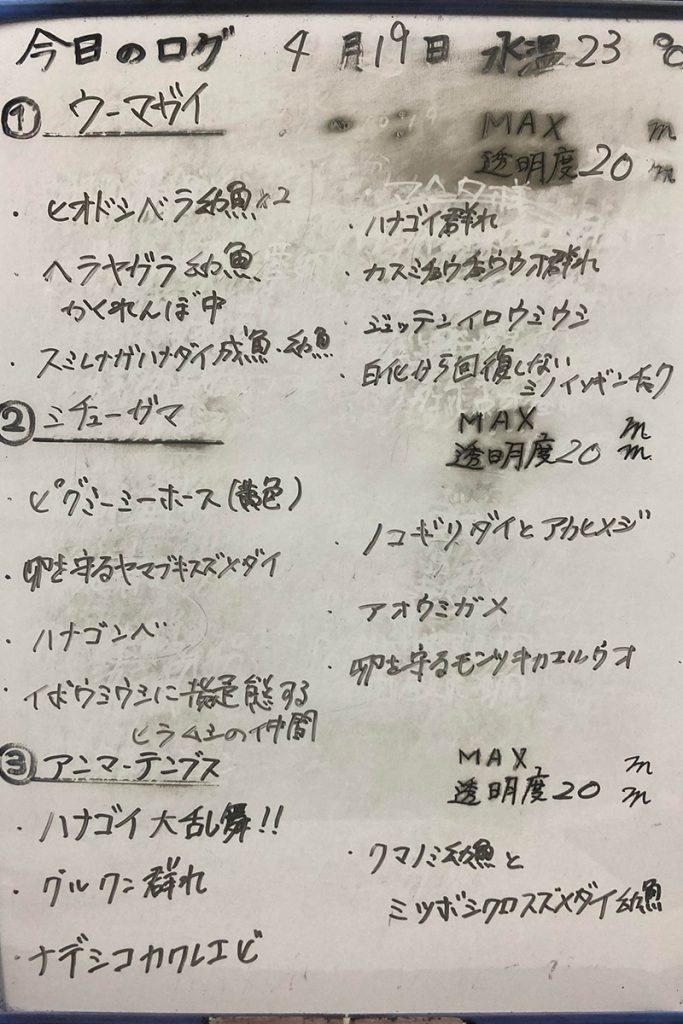 今日のログ 4月19日 水温23℃
① ウーマガイ
MAX m
透明度20m
・ヒオドシベラ幼魚×2
・ヘラヤガラ幼魚
かくれんぼ中
・スミレナガハナダイ成魚・幼魚
・ハナゴイ群れ
・カスミチョウチョウウオ群れ
・ジュッテンイロウミウシ
・白化から回復しない
ミノイソギンチャク
② ミチューガマ
MAX m
透明度20m
・ピグミーミーホース(黄色)
・卵を守るヤマブキスズメダイ
・ハナゴンベ
・イボウミウシに擬態する
ヒラムシの仲間
・ノコギリダイとアカヒメジ
・アオウミガメ
・卵を守るモンツキカエルウオ
③ アンマーテンブス
MAX m
透明度20m
・ハナゴイ大乱舞!!
・グルクン群れ
・ナデシコカクレエビ
・クマノミ幼魚と
ミツボシクロスズメダイ幼魚